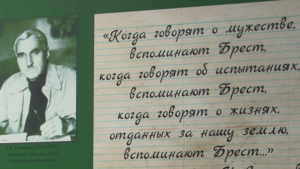 «Когда говорят о мужестве,
вспоминают Брест,
когда говорят об испытаниях,
вспоминают Брест,
когда говорят о жизнях,
отданных за нашу землю,
вспоминают Брест...»